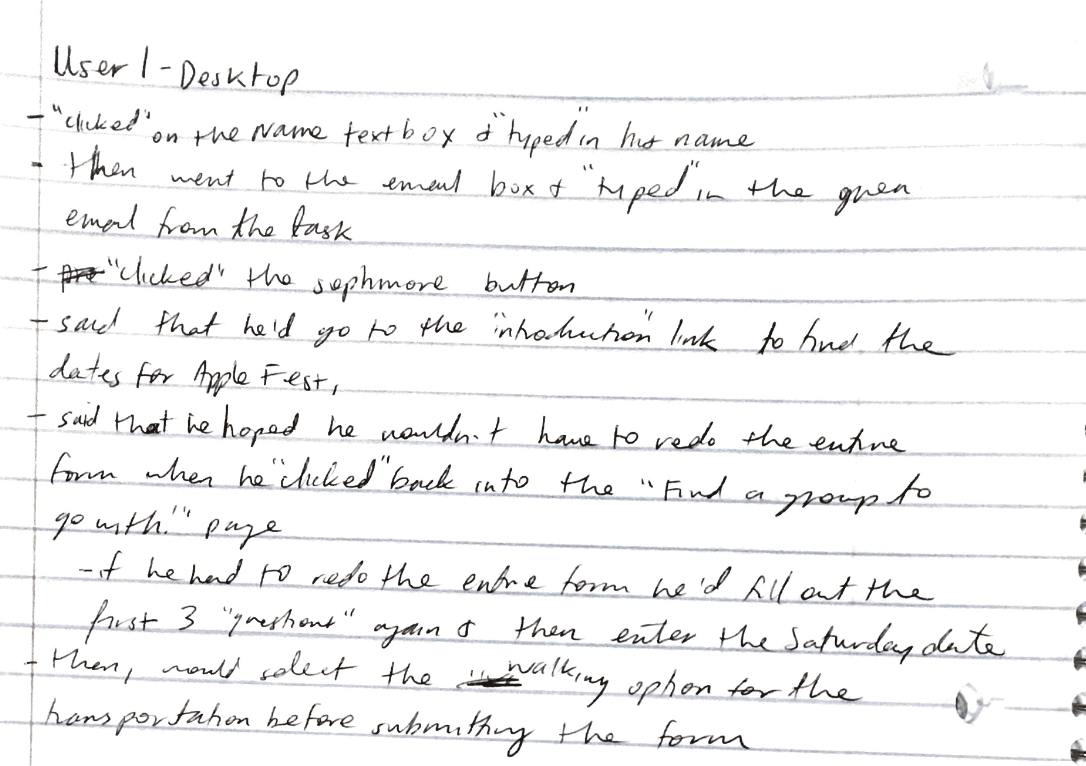 User 1 - Desktop
- "clicked" on the Name textbox & "typed" in his name
- then went to the email box & "typed" in the given
email from the task
- "clicked" the sophmore button
- said that he'd go to the "introduction" link to find the
dates for Apple Fest,
- said that he hoped he wouldn't have to redo the entire
form when he "clicked" back into the "Find a group to
go with!" page
- if he had to redo the entire form he'd fill out the
first 3 "questions" again & then enter the Saturday date
- then, would select the walking option for the
transportation before submitting the form